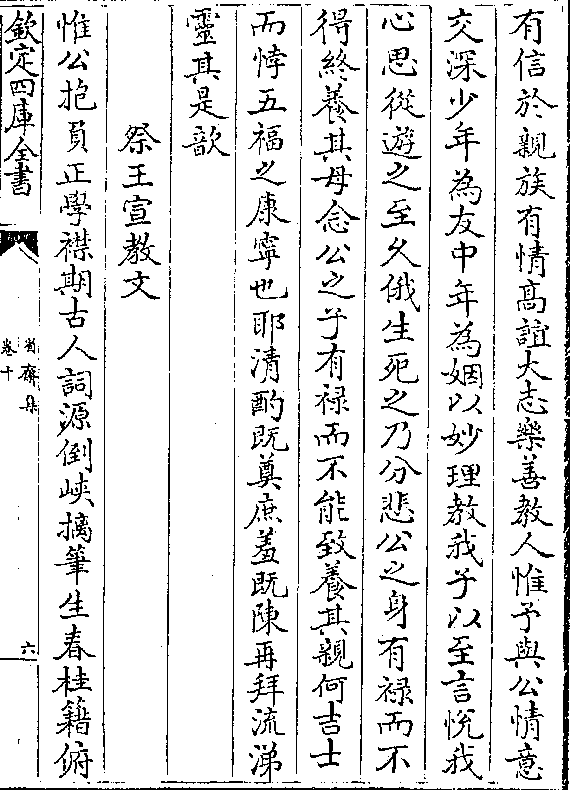 有信於親族有情高誼大志樂善教人惟予與公情意
交深少年為友中年為姻以妙理教我子以至言悅我
心思從遊之至久俄生死之乃分悲公之身有祿而不
得終養其母念公之子有祿而不能致養其親何吉士
而悖五福之康寧也耶清酌既奠庶羞既陳再拜流涕
靈其是歆
祭王宣教文
惟公抱負正學襟期古人詞源倒峽摛筆生春桂籍俯
欽定四庫全書
省齋集
卷十
六